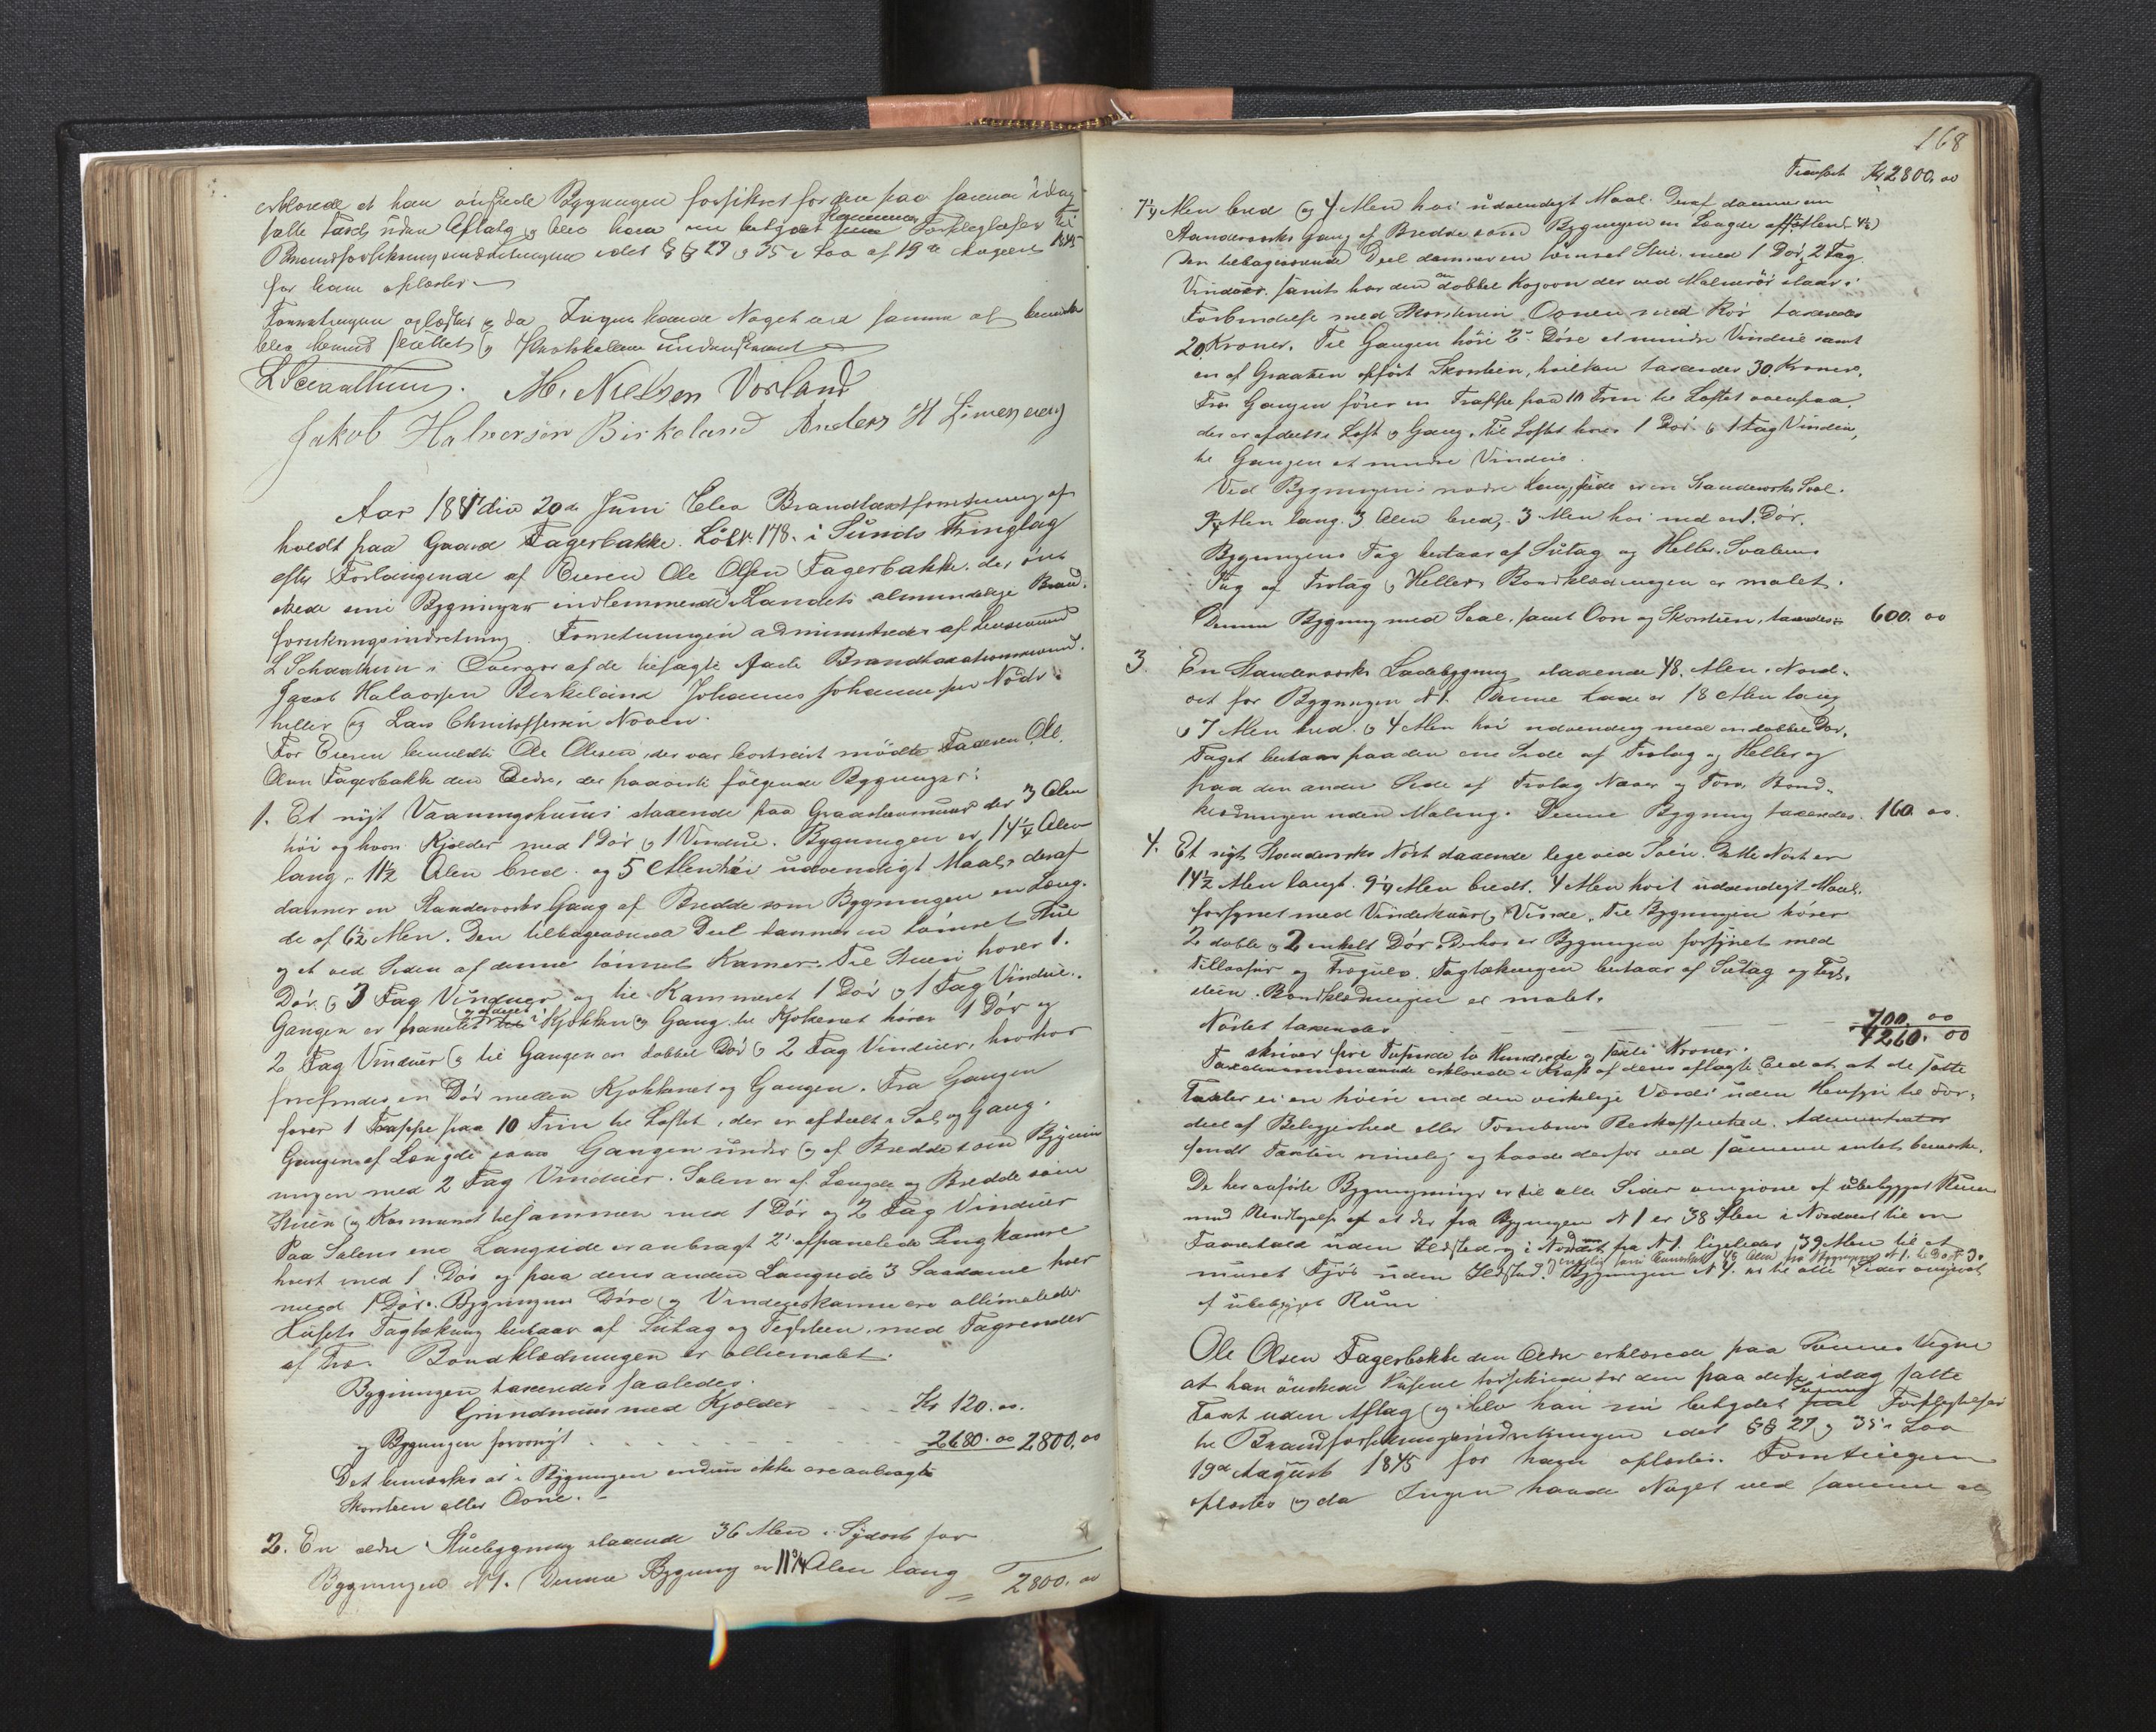 erklærede at han ønskede Bygningen forsikret for den paa samme idag
satte Taxt uden Afslag og blev han um betydet Sønnens Forpligtelser til
Brandforsikringsindretningen idet § § 27 og 35 i Lov af 19de August 1845
for ham oplæstes
Forretningen oplæstes og da Ingen havde Noget ved samme at bemærke
blev den sluttet og Protokollen underskrevet
L Schaathun. M. Nielsen Vorland
Jakob Halvorsen Birkeland Anders H
Aar 1881 den 20de Juni blev Brandtaxtforretning af
holdt paa Gaard Fagerbakke Løbn: 178. i Sunds Thinglag
efter Forlangende af Eieren Ole Olsen Fagerbakke, der øn
skede sine Bygninger indlemmede i Landets almindelige Brand-
forsikringsindretning. Forretningen administreredes af Lensmand
L Schaathun i Overvær af de til faste Brandtaxationsmænd.
Jacob Halvorsen Birkeland Johannes Johannessen
og Lars Christoffersen
For Eieren Ole Olsen, der var bortreist mødte Faderen Ole
Olsen Fagerbakke den Ældre, der paaviste følgende Bygninger:
1. Et nyt Vaaningshuus staaende paa Graasteensmuur der 3 Alen
høi og hvori Kjelder med 1 Dør og 1 Vindue. Bygningen er 14¼ Alen
lang, 11½ Alen bred og 5 Alen høi udvendigt Maal, deraf
danner en Standværks Gang af Bredde som Bygningen en Læng-
de af 6½ Alen. Den tilbageværende Deel danner en tømret Stue
og et ved Siden af denne tømret Kammer. Til Stuen hører 1
Dør og 3 Fag Vinduer og til Kammeret 1 Dør og 1 Fag Vindue.
Gangen er panelet og afdeelt i Kjøkken og Gang til Kjøkkenet hører 1 Dør og
2 Fag Vinduer og til Gangen en dobbel Dør og 2 Fag Vinduer, hvorhos
forefindes en Dør mellem Kjøkkenet og Gangen. Fra Gangen
fører 1 Trappe paa 10 Trin til Loftet, der er afdeelt i Sal og Gang.
Gangen af Længde som Gangen under og af Bredde som Bygnin
ningen med 2 Fag Vinduer. Salen er af Længde og Bredde som
Stuen og Kammeret tilsammen med 1 Dør og 2 Fag Vinduer
Paa Salens ene Langside er anbragt 2 afpanelede Sengkamre
hvert med 1 Dør og paa dens anden Langside 3 Saadanne hver
med 1 Dør. Bygningens Døre og Vindueskarme ere alle malede
Husets Tagtækning bestaar af Sutag og Teglsteen med Tagrender
af Træ. Bordklædningen er oliemalet.
Bygningen taxeredes saaledes.
Grundmuur med Kjelder - - - Kr 120.00.
og Bygningen forøvrigt - - - 2680.00 2800.00
Det bemærkes at i Bygningen endnu ikke ere anbragte
Skorsteen eller Ovne.
2. En ældre Stuebygning staaende 36 Alen i Sydost for
Bygningen № 1. Denne Bygning er 11¾ Alen lang
2800.00
168
Transport Kr 2800.00
7¼ Alen bred og 4 Alen høi udvendigt Maal. Deraf danner en
Standværks Gang af Bredde som Bygningen en Længde af Alen (4½)
Den tilbageværende Deel danner en tømret Stue med 1 Dør, 2 Fag
Vinduer, samt har den en dobbel Kogovn der ved Malmrør staar i
Forbindelse med Skorstenen Ovnen med Rør taxeredes
20 Kroner. Til Gangen hører 2 Døre et mindre Vindue samt
en af Graasten opført Skorsten, hvilken taxeredes 30 Kroner.
Fra Gangen fører en Trappe paa 10 Trin til Loftet ovenpaa,
der er afdeelt i Loft og Gang. Til Loftet hører 1 Dør og 1 Fag Vindue,
til Gangen et mindre Vindue.
Ved Bygningens nordre Langside er en Standværks Sval.
Alen lang 3 Alen bred, 3 Alen høi med en 1 Dør.
Bygningens Tag bestaar af Sutag og Heller. Svalens
Tag af Trotag og Heller. Bordklædningen er malet.
Denne Bygning med Sval, samt Ovn og Skorsten, taxeredes 600.00
3. En Standværks Ladebygning staaende 48 Alen i Nord-
ost for Bygningen № 1. Denne Lade er 18 Alen lang
og 7 Alen bred og 4 Alen høi udvendig med en dobbel Dør,
Taget bestaar paa den ene Side af Trotag og Heller og
paa den anden Side af Trotag Næver og Torv. Bord-
klædningen uden Maling. Denne Bygning taxeredes 160.00.
4. Et nyt Standværks Nøst staaende lige ved Søen. Dette Nøst er
14½ Alen langt 9¼ Alen bredt, 4 Alen høit udvendigt Maal.
forsynet med Vindskuur og Vinde. Til Bygningen hører
2 doble og 2 enkelt Dør. Derhos er Bygningen forsynet med
og Tægulv. Tagtækningen bestaar af Sutag og Tegl-
steen. Bordklædningen er malet.
Nøstet taxeredes - - - 700.00
4260.00
skriver fire Tusinde to Hundrede og sexti Kroner.
Taxationsmændene erklærede i Kraft af deres aflagte Eed at, at de satte
Taxter ei ere høiere end den virkelige Værdi uden Hensyn til For-
deel af Beliggenhed eller Tomtens Beskaffenhed. Administrator
fandt Taxten rimelig og havde derfor ved samme intet bemærke.
De her anførte Bygninger er til alle Sider omgivne af ubebygget Rum
med Undtagelse af at der fra Bygningen № 1 er 38 Alen i Nordvest til en
uden Ildsted og i Nordost fra № 1 ligeledes 39 Alen til et
muret Fjøs uden Ildsted. og 48 Alen fra Bygningen № 1 til Do № 3. Bygningen № 4 er til alle Sider omgivet
af ubebygget Rum
Ole Olsen Fagerbakke den Ældre erklærede paa Sønnens Vegne
at han ønskede Husene forsikrede for den paa dem idag satte
Taxt uden Afslag og blev han um betydet Sønnens Forpligtelser
til Brandforsikringsindretningen idet §§ 27 og 35 i Lov
19de August 1845 for ham oplæstes. Forretningen
oplæstes og da Ingen havde Noget ved samme at